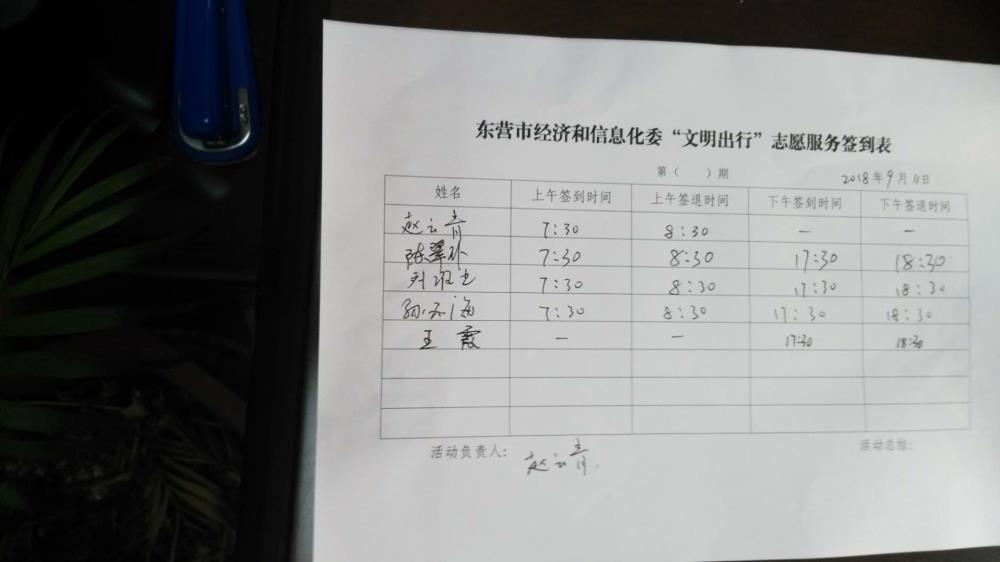 东营市经济和信息化委“文明出行”志愿服务签到表
第（ ）期 2018年9月4日
姓名 上午签到时间 上午签退时间 下午签到时间 下午签退时间
赵云青 7:30 8:30 — —
陈翠 7:30 8:30 17:30 18:30
刘 7:30 8:30 17:30 18:30
孙 海 7:30 8:30 17:30 18:30
王霞 — — 17:30 18:30
活动负责人： 赵云青. 活动总结：